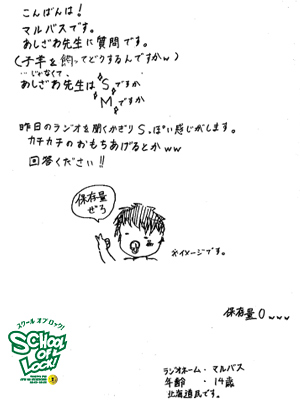 こんばんは！
マルバスです。
あしざわ先生に質問です。
(子羊を飼ってどうするんですかw)
…じゃなくて、
あしざわ先生は "S"ですか
"M"ですか
昨日のラジオを聞くかぎりSっぽい感じがします。
カチカチのおもちあげるとかww
回答ください!!
保存量
ぜろ
※イメージです。
保存量0www
スクール オブ ロック!
SCHOOL
OF
LOCK!
ラジオネーム・マルバス
年齢・14歳
北海道民です。